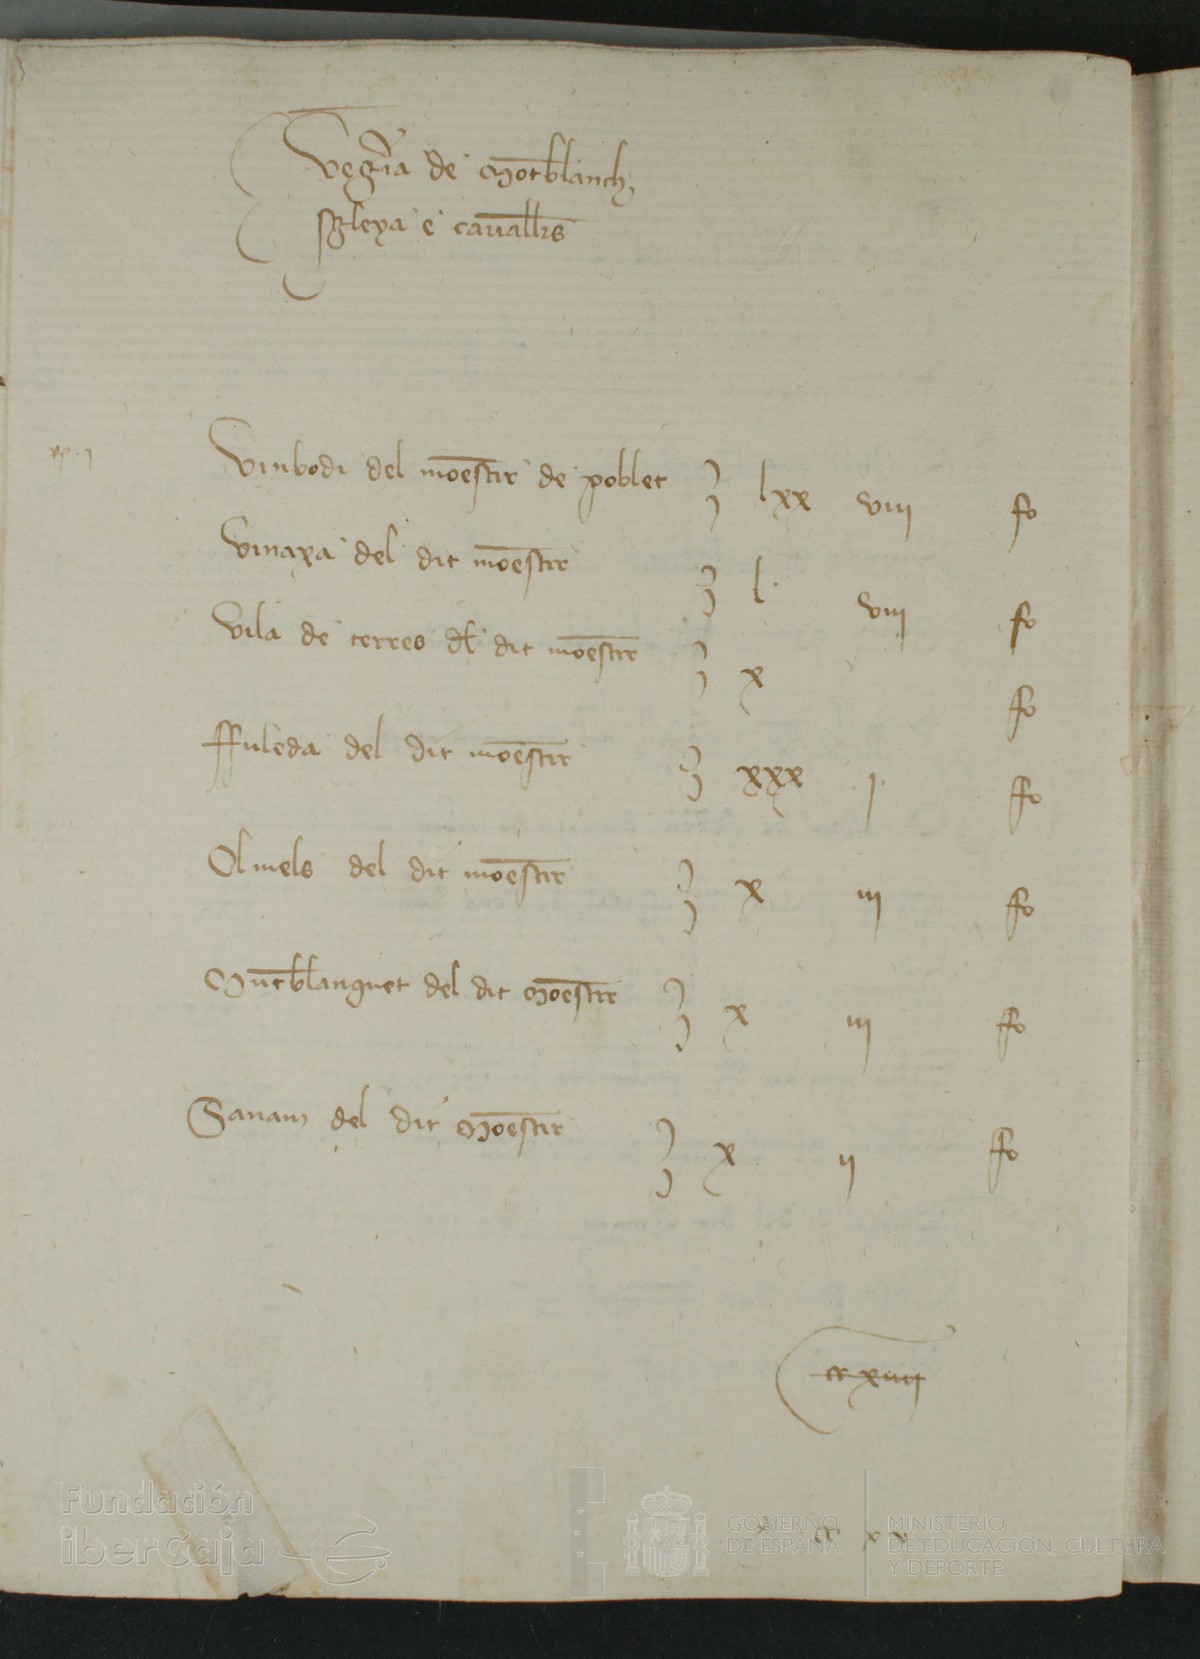 Vegria de Montblanch,
sgleya e cavallrs
Vinbodi del moestir de poblet lxx viii fo
Vinaxa del dit moestir l viii fo
Vila de terres dl dit moestir x fo
ffuleda del dit moestir xxx j fo
Olmels del dit moestir x iii fo
Muntblanquet del dit Moestir x iii fo
Sanam del dit Moestir x ii fo
cc xiiii
cc x x
Fundación
iberCaja
GOBIERNO
DE ESPAÑA
MINISTERIO
DE EDUCACIÓN, CULTURA
Y DEPORTE